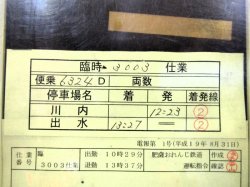 臨時 3003 仕業
便乗 6324D 両数
停車場名 着 発 着発線
川内 12=23 ②
出水 13=27 ー ②
電報第 1号(平成19年8月31日)
仕業番号 臨 3003仕業 出勤 10時29分 退勤 13時37分 肥薩おれんじ鉄道 運転指令 確認